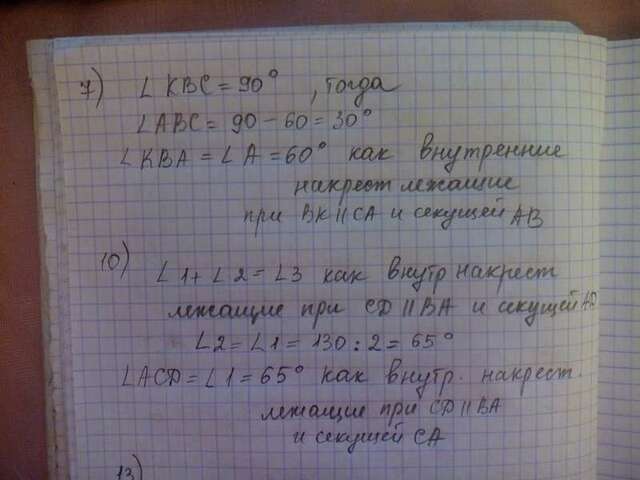 7) ∠KBC = 90° , тогда
∠ABC = 90 - 60 = 30°
∠KBA = ∠A = 60° как внутренние
накрест лежащие
при BK || CA и секущей AB
10) ∠1 + ∠2 = ∠3 как внутр накрест
лежащие при CD || BA и секущей AD
∠2 = ∠1 = 130 : 2 = 65°
∠ACD = ∠1 = 65° как внутр. накрест.
лежащие при CD || BA
и секущей CA
13)